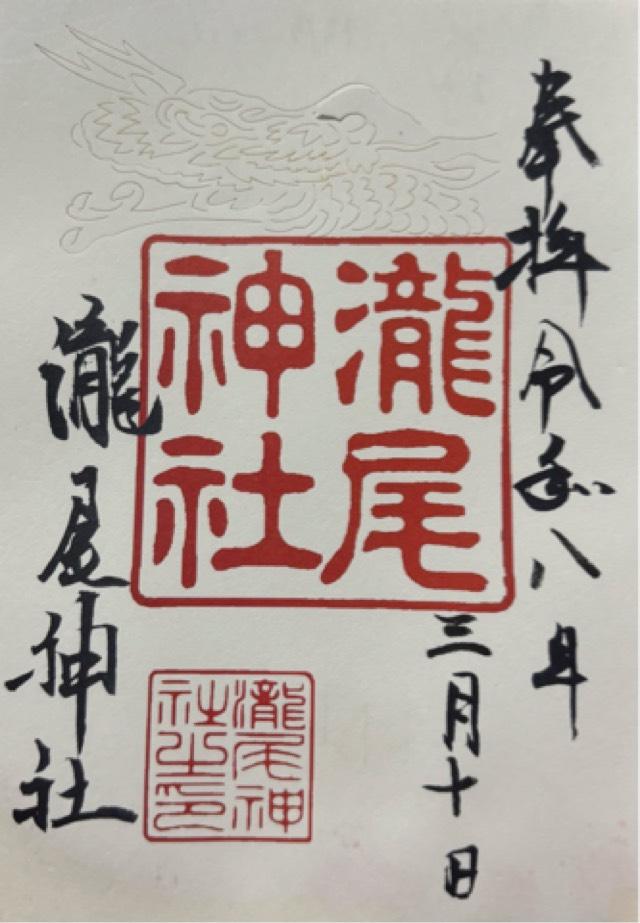 奉拝 令和八年
三月十日
瀧尾神社
瀧尾神社
瀧尾神社之印